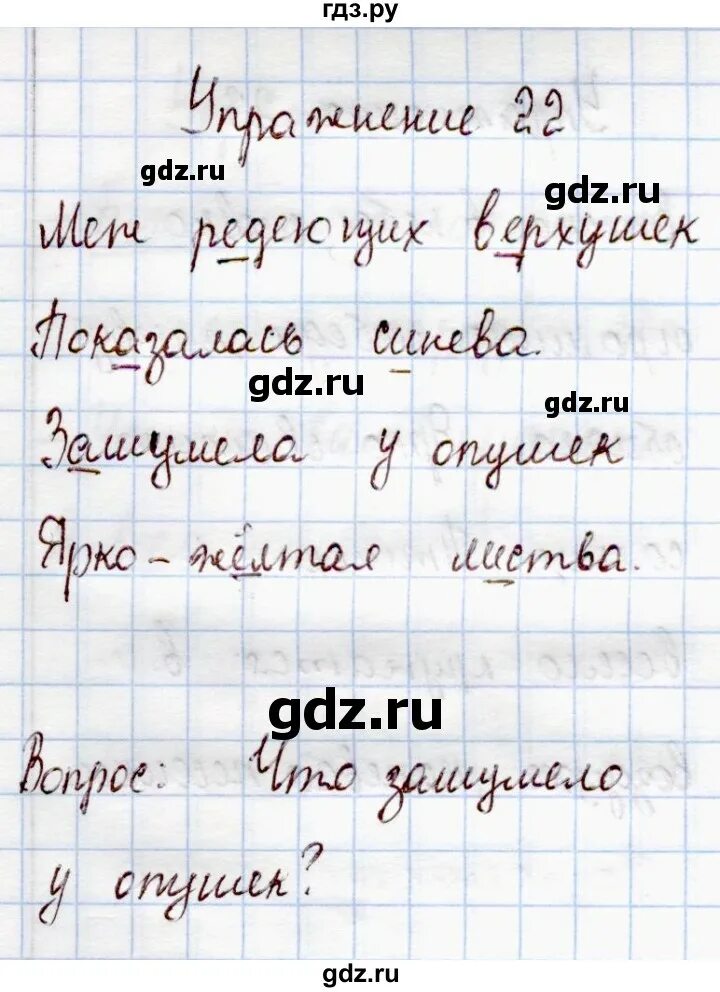 гдз.ру
Упражнение 22
gdz.ru
gdz.ru
Меж редеющих верхушек
Показалась синева.
gdz.ru
gdz.ru
Зашумела у опушек
Ярко-жёлтая листва.
gdz.ru
Вопрос: Что зашумело
у опушек?
gdz.ru